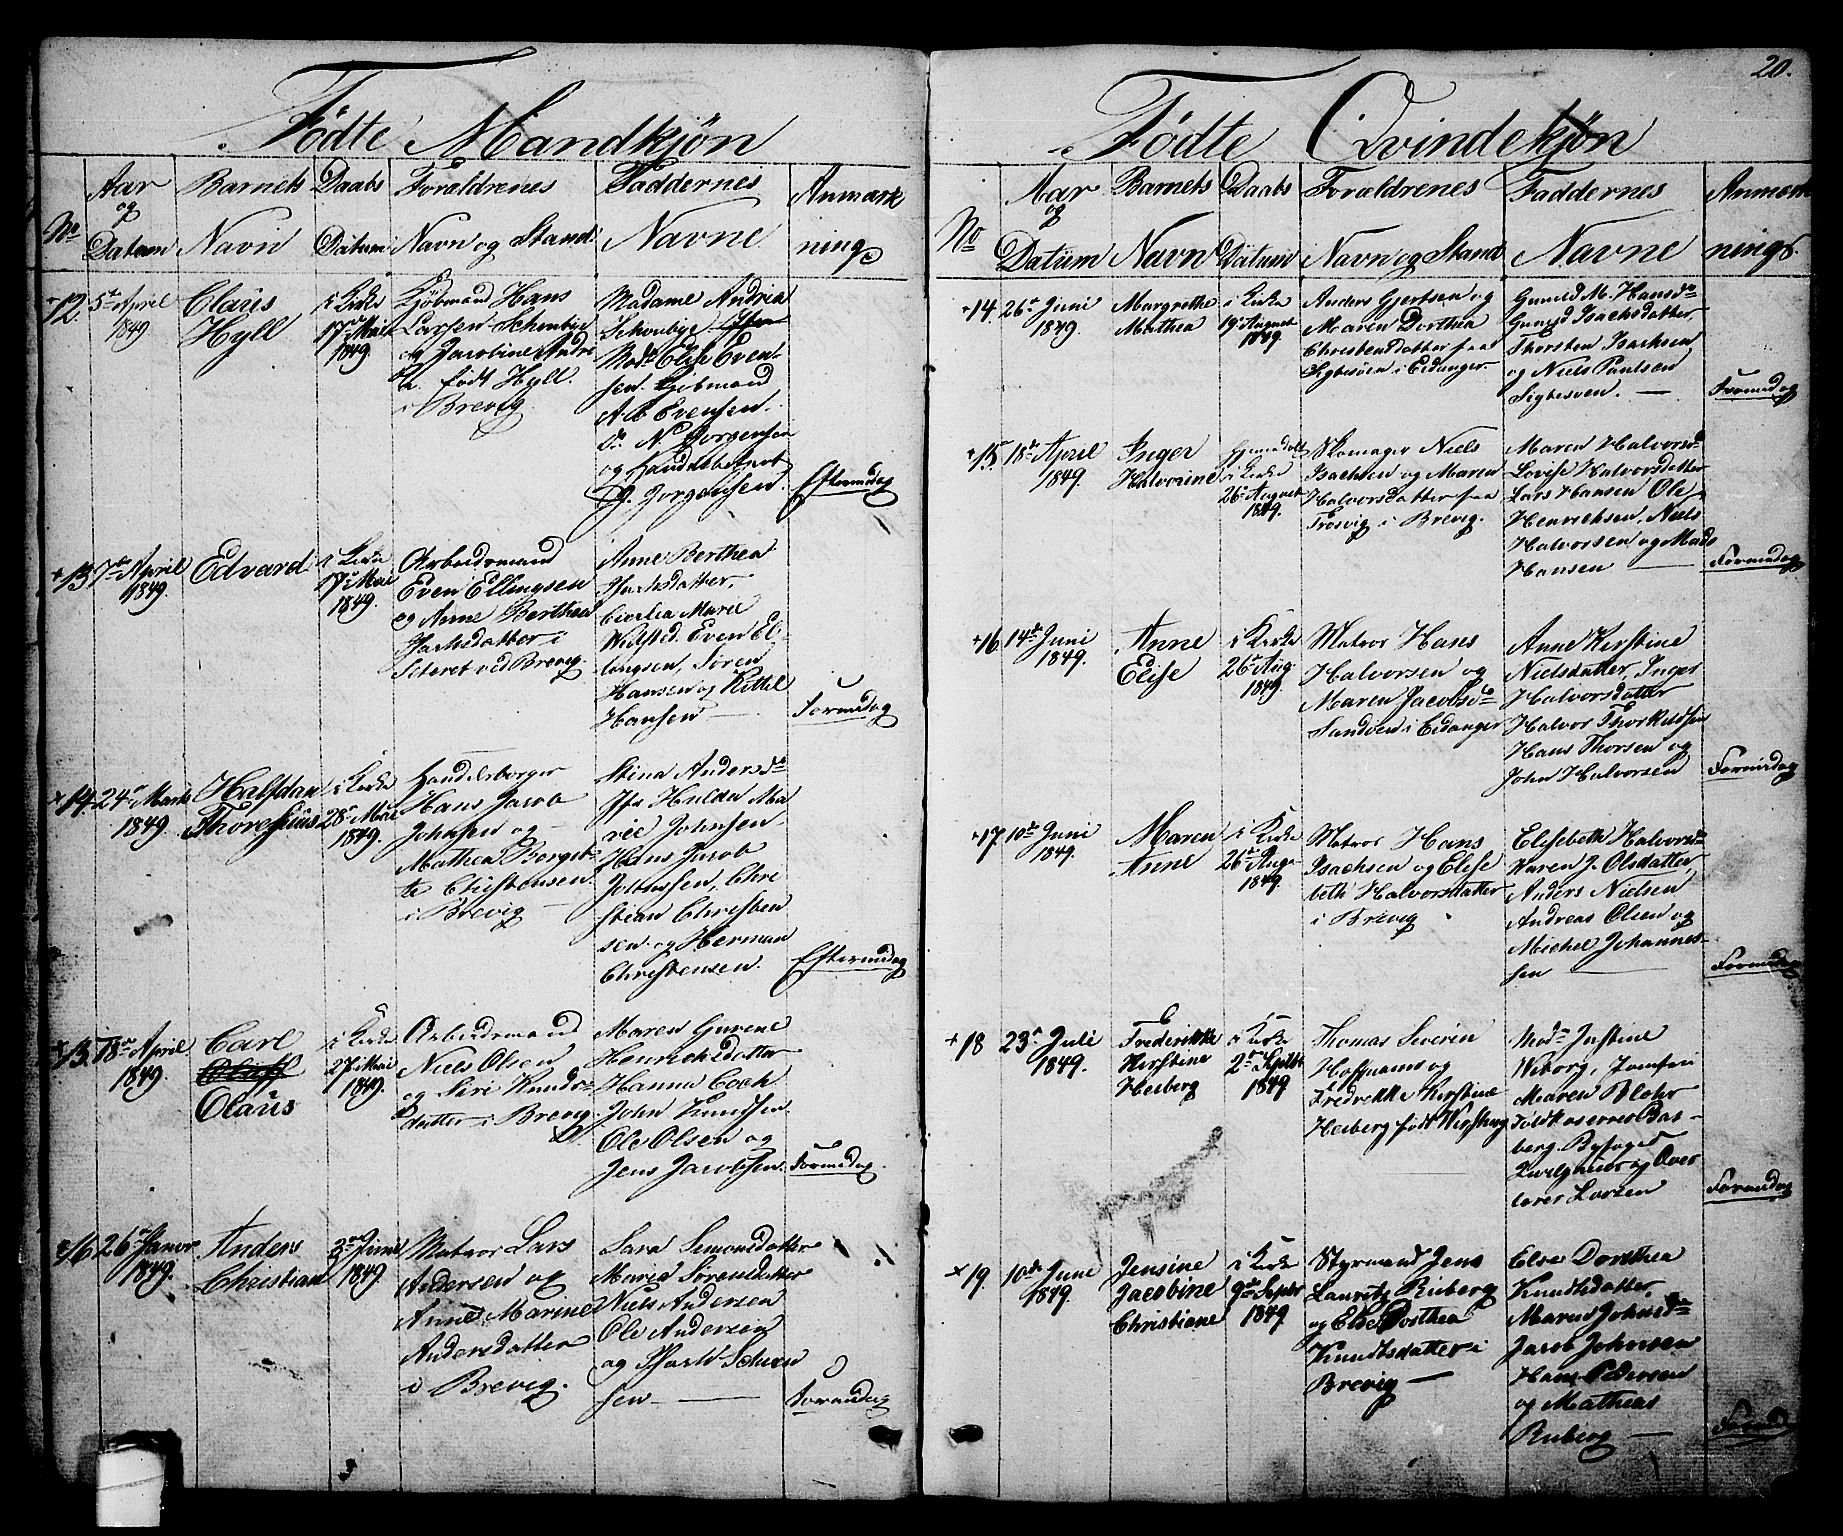 20.
Födte Mandkjøn
No
Aar og Datum
Barnets Navn
Daabs Datum
Foraldrenes Navn og Stand
Faddernes Navne
Anmærk ning
12. 5te April 1849
Claus
Hyll
i Kirke
17de Mai
1849
Kjöbmand Hans
Larsen Schoubye
og Jacobine Andri
a. født Hyll.
i Brevig.
Madame Andrea
Schoubye
Mad. Elise Even-
sen. Kjöbmand
A B Evensen.
Do. N. Jorgensen
og Handelsbetjent
Jorgensen.
Eftermidag
+13 7de April 1849.
Edvard
i Kirke
17de Mai
1849.
Arbeidsmand
Even Ellingsen
og Anne Berthea
Isaksdatter i
Seteret ved Brevig.
Anne Berthea
Isaksdatter,
Cicelia Marie
Wolfsted. Even El-
lingsen, Søren
Hansen og Kittel
Hansen —
Formidag
+14. 24de Marts 1849.
Halfdan
Thoresius
i Kirke
28de Mai
1849.
Handelsborger
Hans Jacob
Johnsen og
Mathea Borget-
te Christensen
i Brevig —
Stina Andersdr
Jfr Hulda Ma
rie Johnsen,
Hans Jacob
Johnssen, Chri
stian Christen
sen og Herman
Christensen.
Eftermidag
15. 18de April 1849.
Carl
Claus
i Kirke
27de Mai
1849.
Arbeidsmand
Niels Olsen
og Siri Knuds-
datter i Brevig.
Maren Gurene
Henrichsdatter
Hanna Coch
John Knudsen
Ole Olsen og
Jens Jacobsen.
Formidag.
16. 26de Januar 1849.
Anders
Christian
3de Junii
1849.
Matros Lars
Andersen og
Anne Marine
Andersdatter
i Brevig.
Sara Simonsdatter
Marie Sørensdatter
Niels Andersen
Ole Andersen
og
sen —
Formidag
Födte Qvindekjøn
No
Aar og Datum
Barnets Navn
Daabs Datum
Foraldrenes Navn og Stand
Faddernes Navne
Anmærk nings.
+14. 26de Juni 1849.
Margrethe
Mathea
i Kirke
19de August
1849.
Anders Gjertsen og
Maren Dorthea
Christensdatter paa
Sigtesöen i Eidanger.
Gunild M. Hansdr
Gunild Isachsdatter,
Thorsten Isachsen
og Niels Paulsen
Sigtesøen. —
Formidag
+15. 18de April 1849.
Inger
Halvorine
Hjemmedøbt
i Kirke
26de August
1849.
Skomager Niels
Isachsen og Maren
Halvorsdatter paa
Trosvig i Brevig.
Maren Halvorsdr
Lovise Halvorsdatter
Lars Hansen Ole
Henrichsen, Niels
Halvorsen og Mads
Hansen —
Formidag
+16. 14de Juni 1849.
Anne
Elise
i Kirke
26de Aug.
1849.
Matros Hans
Halvorsen og
Maren Jacobsdr
Sandøen i Eidanger
Anne Kirstine
Nielsdatter, Inger
Halvorsdatter
Halvor Thorkildsen
Hans Thorsen og
John Halvorsen
Formidag
+17. 10de Juni 1849.
Maren
Anne
i Kirke
26de Aug.
1849.
Matros Hans
Isachsen og Elise
beth Halvorsdatter
i Brevig.
Elisebeth Halvorsdr
Karen J. Olsdatter,
Anders Nielsen
Andreas Olsen og
Michel Johannes-
sen —
Formidag
+18 23de Juli 1849.
Frederikke
Kirstine
Heiberg
i Kirke
2den Septbr
1849
Thomas Severin
Hofmans og
Fredrekke Kirstine
Heiberg født Wisting
Mad. Justine
Wiborg, Jomfru
Maren Blehr
Toldkaserer Bas-
berg. Byfoged
og Over
lærer Larsen
Formidag
× 19. 10de Juni 1849.
Jensine
Jacobine
Christiane
i Kirke
9de Septbr
1849
Styrmand Jens
Lauritz Ruberg
og Else Dorthea
Knudtsdatter i
Brevig —
Else Dorthea
Knudtsdatter,
Maren Johnsdr
Jacob Johnsen
Hans Pedersen
og Mathias
Ruberg —
Formid